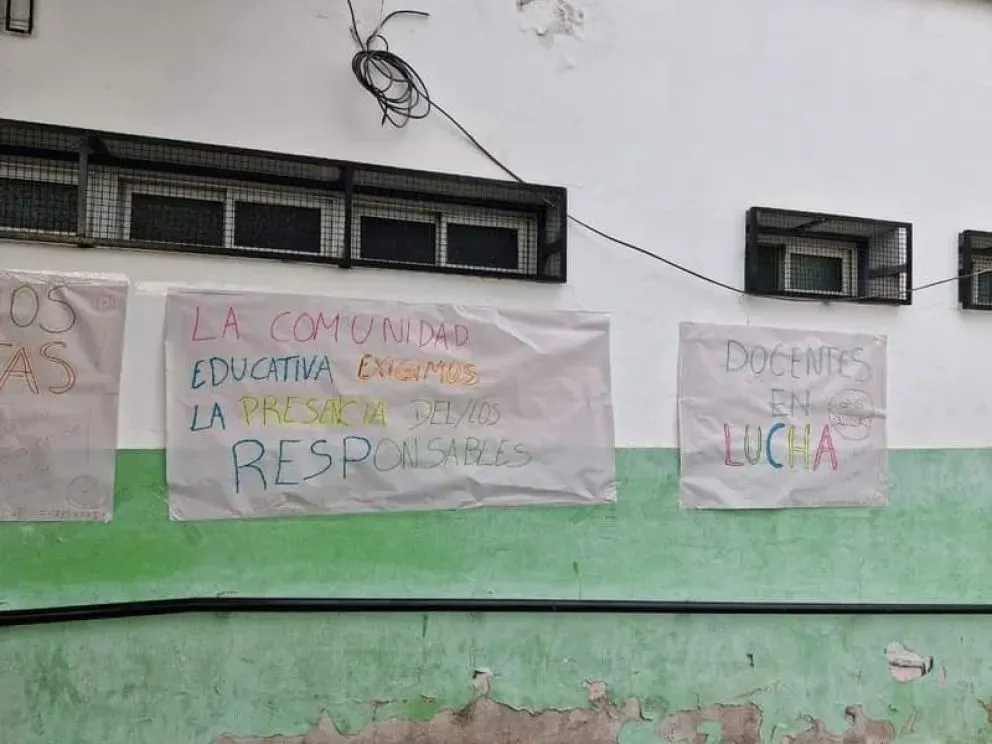 OS
TAS
LA COMUNIDAD
EDUCATIVA EXIGIMOS
LA PRESENCIA DEL/LOS
RESPONSABLES
DOCENTES
EN
LUCHA